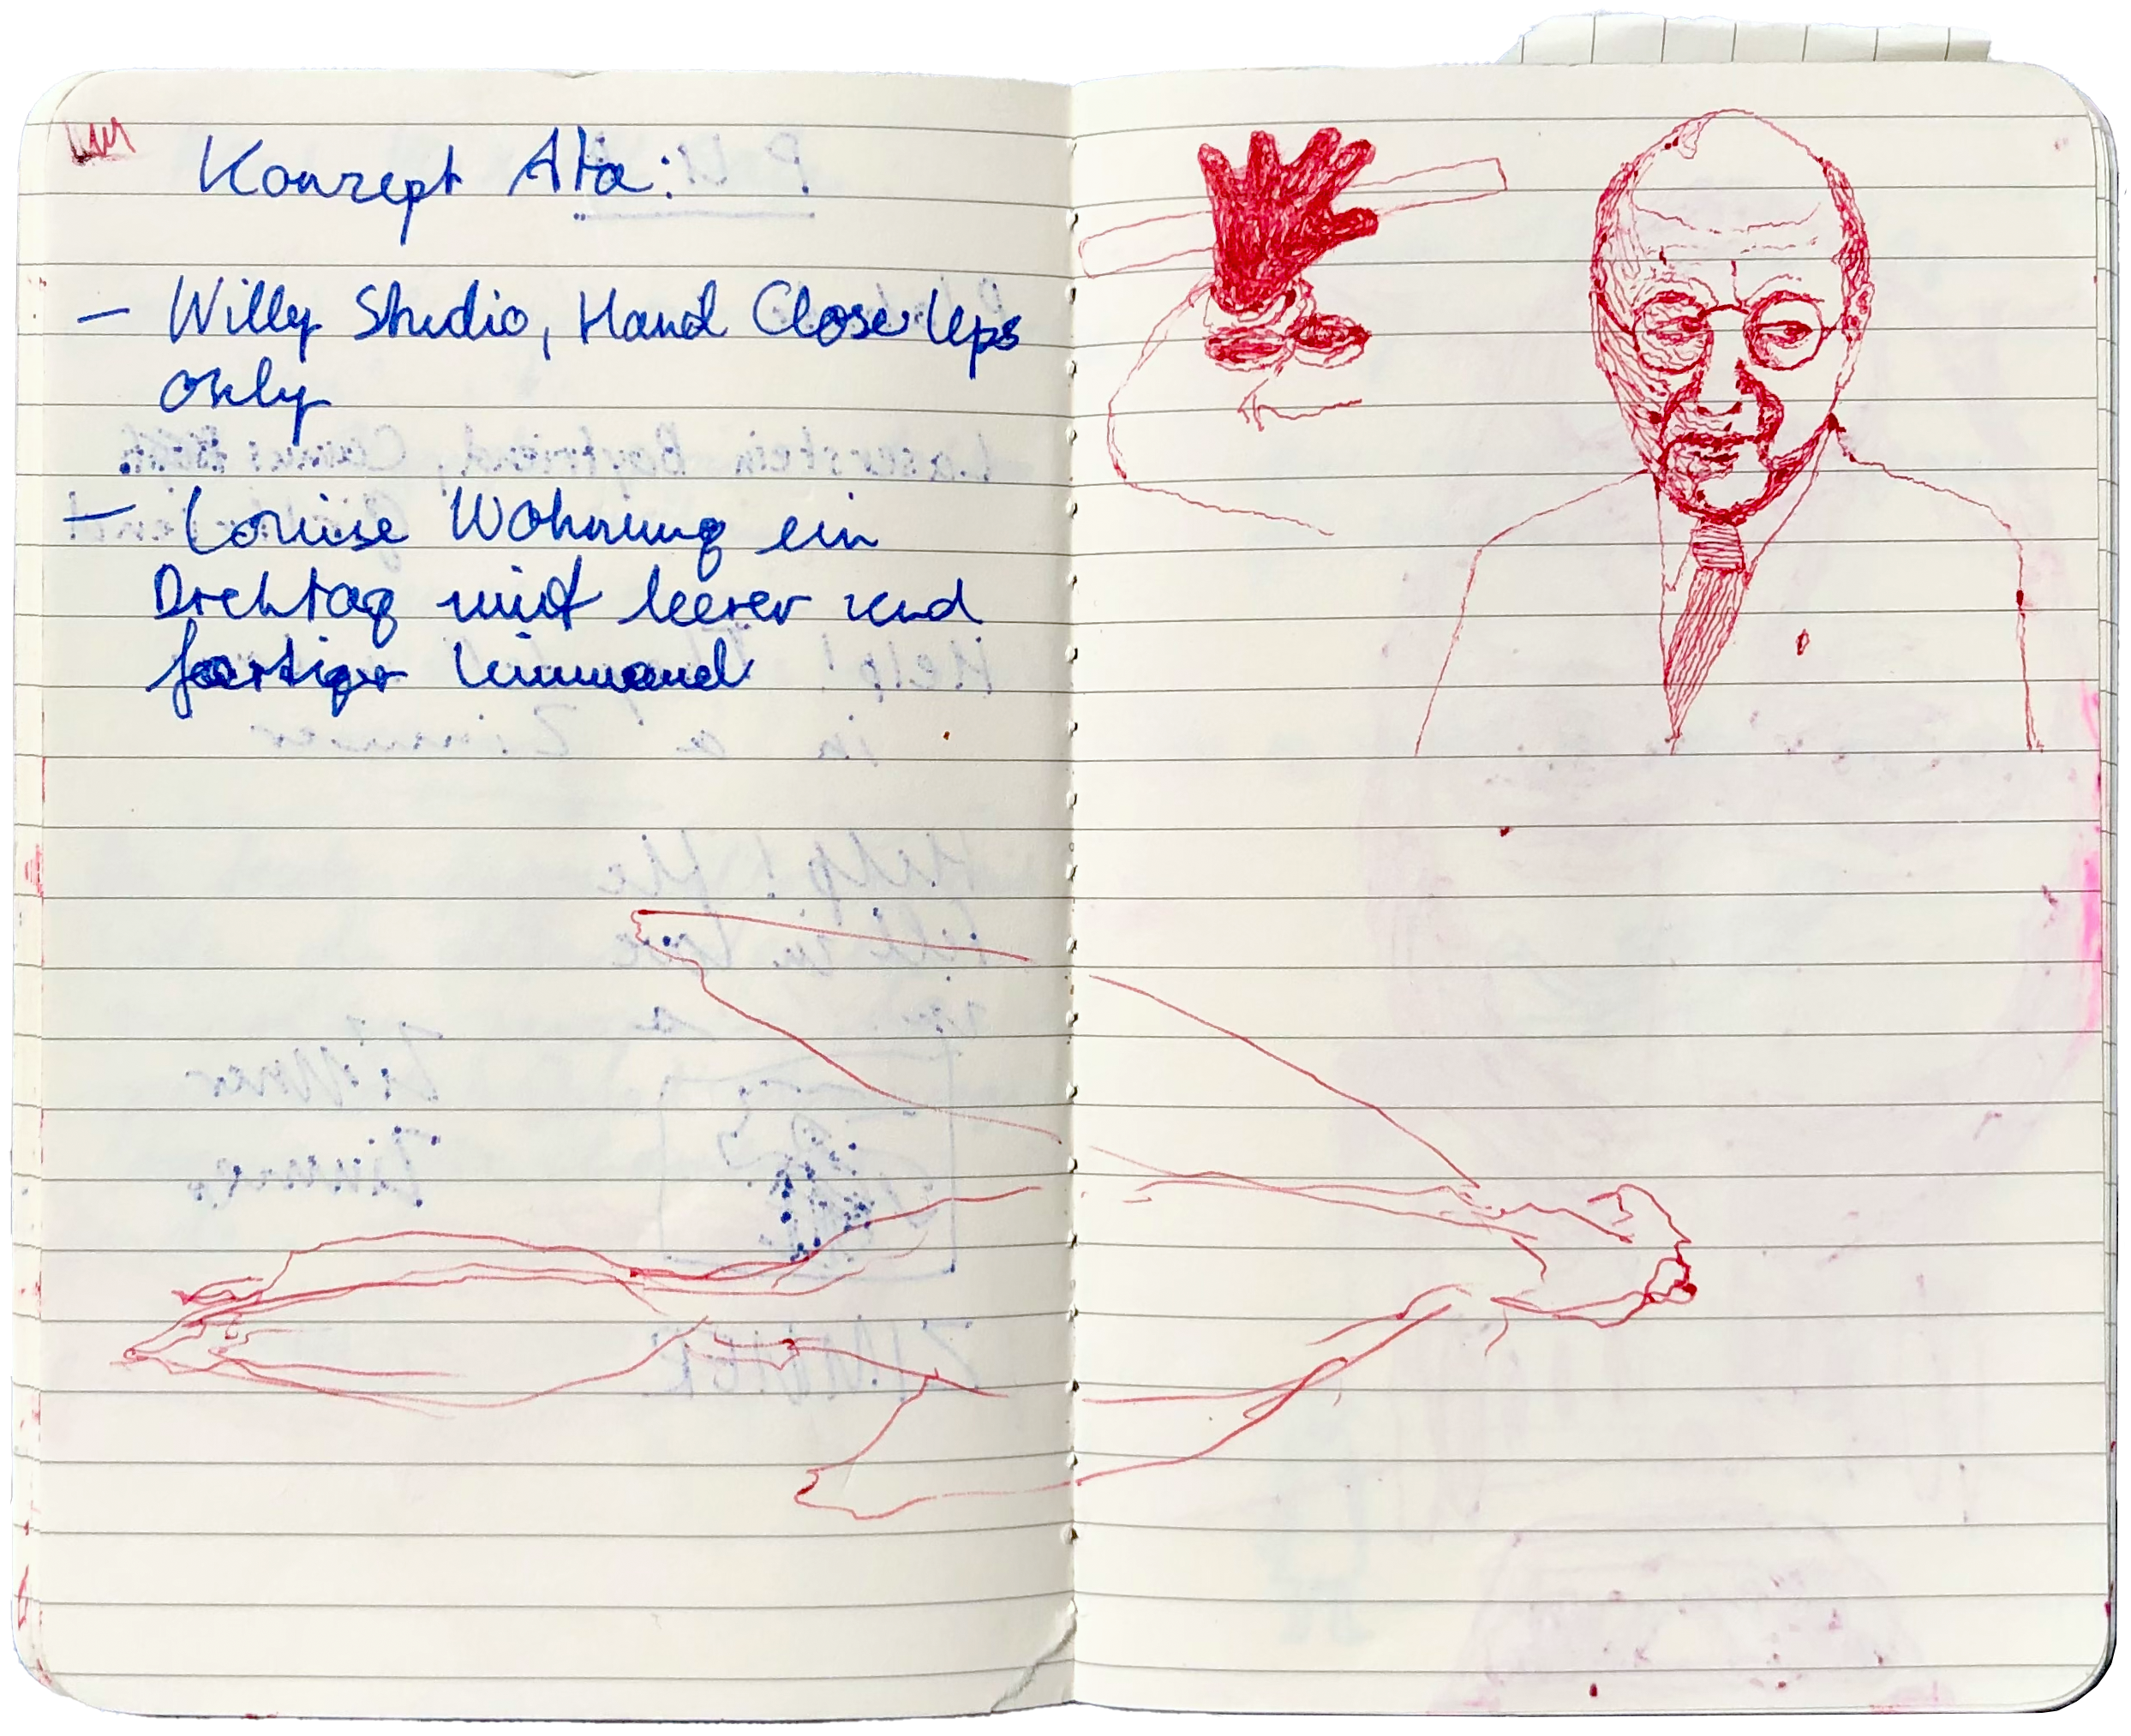 Konzept Ata:
– Willy Studio, Hand Close Ups
only
– Louise Wohnung ein
Drehtag mit leerer und
fertiger Leinwand